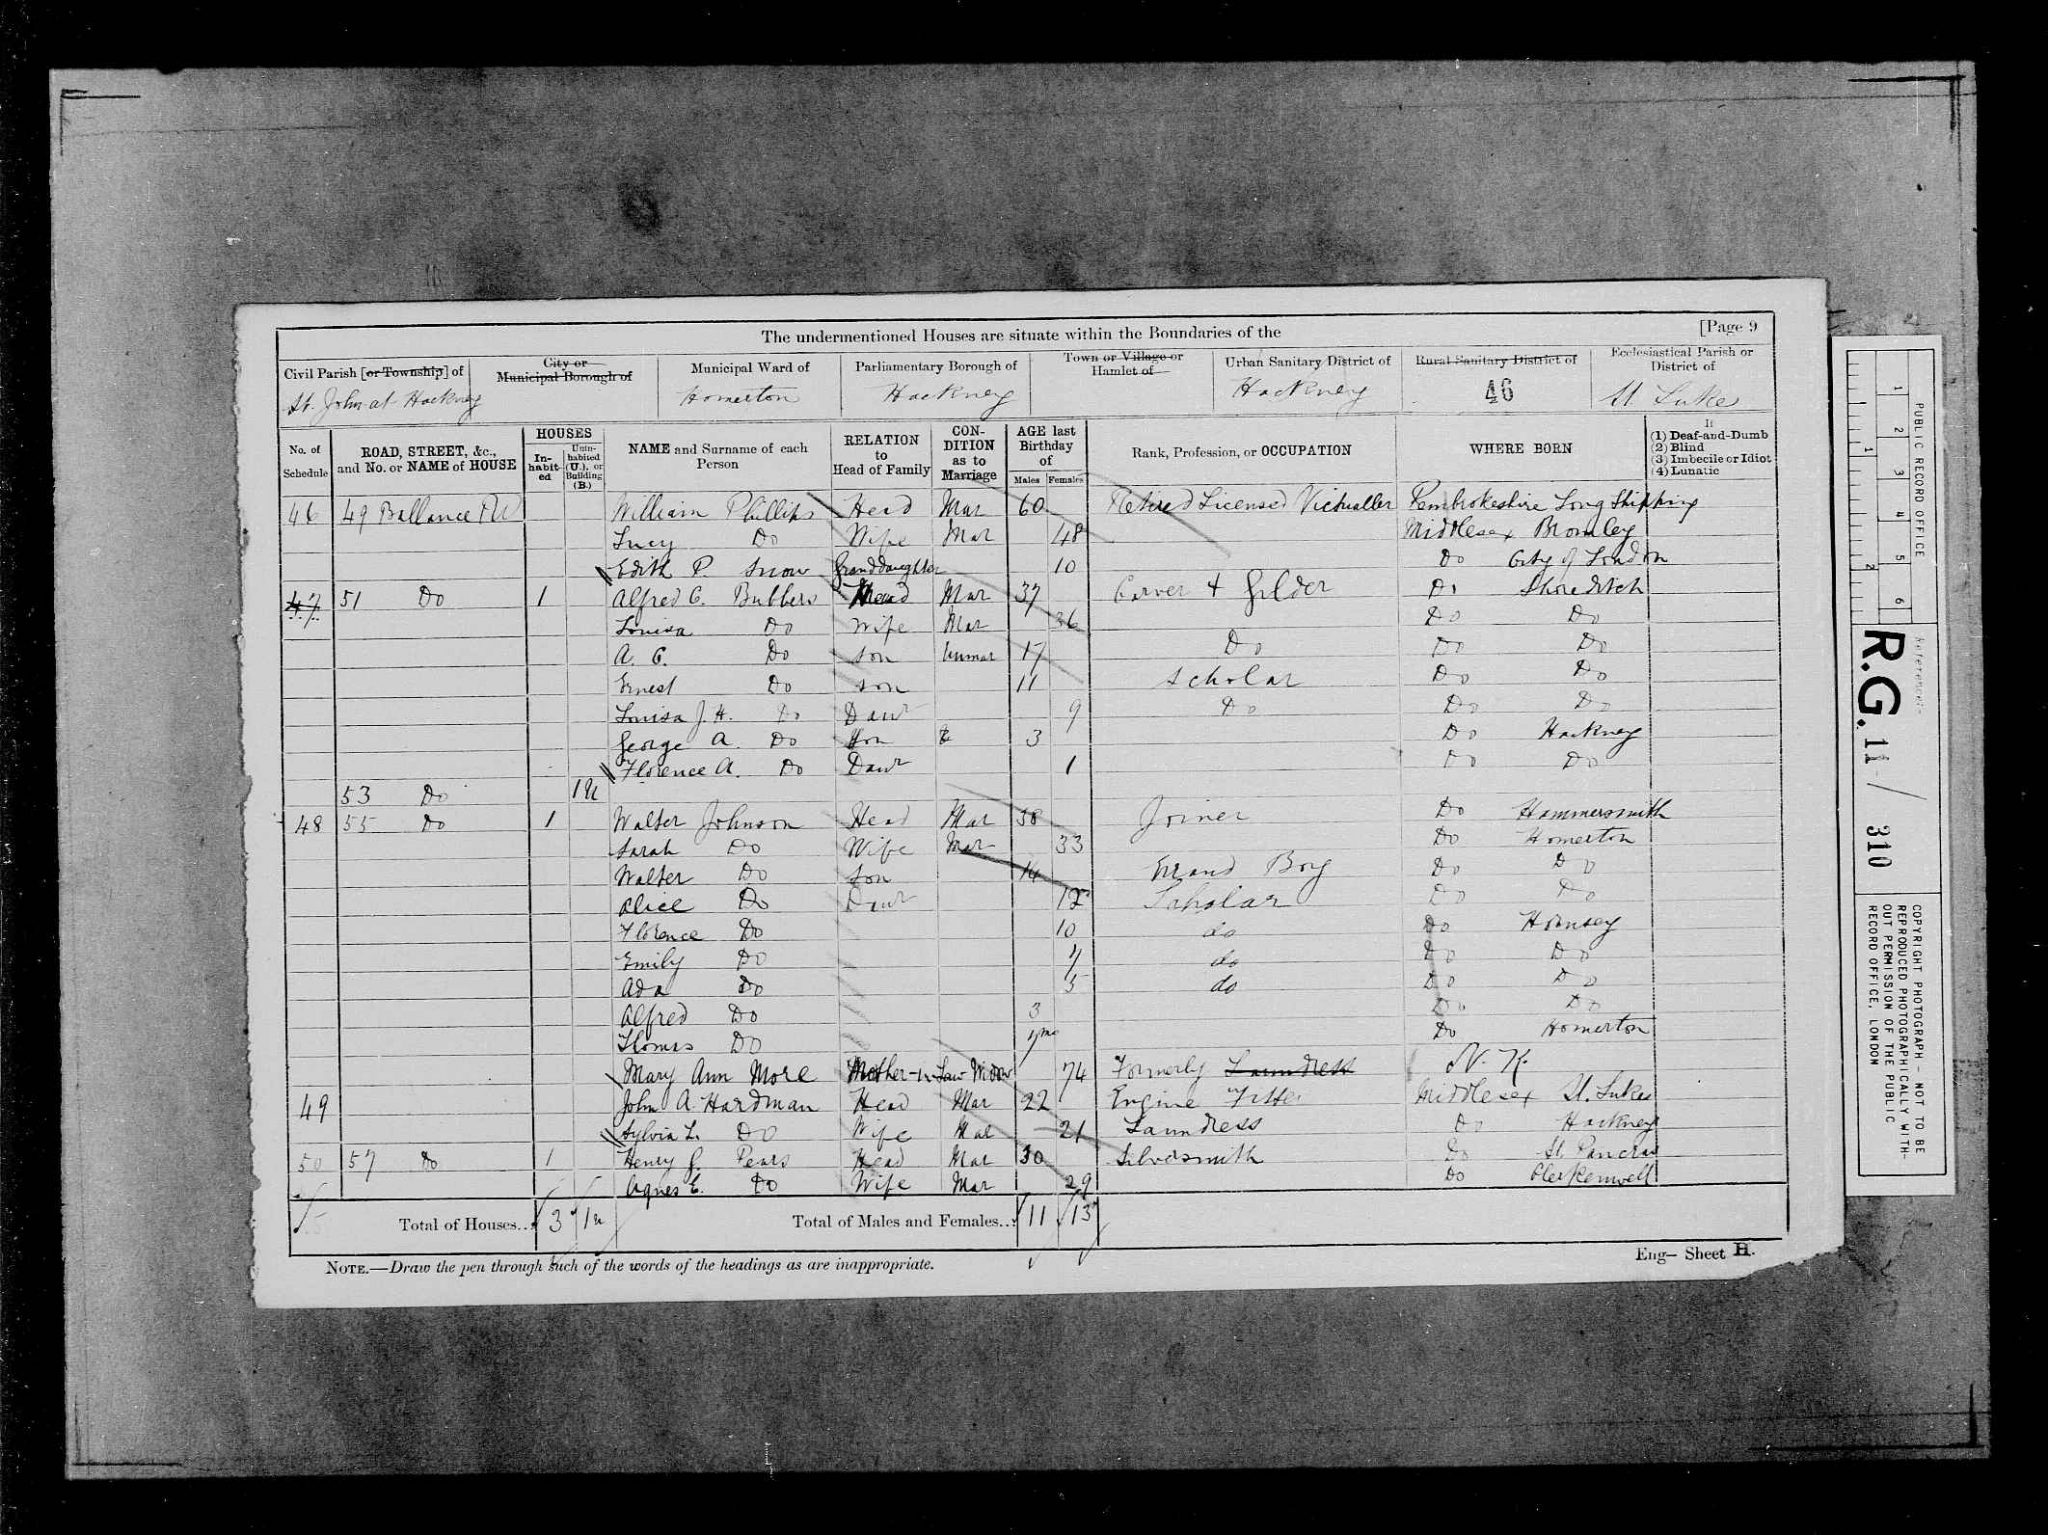 The undermentioned Houses are situate within the Boundaries of the [Page 9
Civil Parish [or Township] of City or Municipal Borough of Municipal Ward of Parliamentary Borough of Town or Village or Hamlet of Urban Sanitary District of Rural Sanitary District of Ecclesiastical Parish or District of
St. John at Hackney Homerton Hackney Hackney 46 St Luke
No. of Schedule ROAD, STREET, &c., and No. or NAME of HOUSE HOUSES Inhabited Uninhabited (U.), or Building (B.) NAME and Surname of each Person RELATION to Head of Family CONDITION as to Marriage AGE last Birthday of Males Females Rank, Profession, or OCCUPATION WHERE BORN If (1) Deaf-and-Dumb (2) Blind (3) Imbecile or Idiot (4) Lunatic
46 49 Ballance Rd William Phillips Head Mar 60 Retired Licensed Victualler Pembrokeshire Long Shipping
Lucy Do Wife Mar 48 Middlesex Bromley
Edith P. Snow Granddaughter 10 Do City of London
47 51 Do 1 Alfred C. Bubbers Head Mar 37 Carver & Gilder Do Shoreditch
Louisa Do Wife Mar 36 Do Do
A. C. Do Son Unmar 17 Do Do Do
Ernest Do Son 11 Scholar Do Do
Louisa J. H. Do Daur 9 Do Do Do
George A. Do Son 3 Do Hackney
Florence A. Do Daur 1 Do Do
53 Do 1U
48 55 Do 1 Walter Johnson Head Mar 38 Joiner Do Hammersmith
Sarah Do Wife Mar 33 Do Homerton
Walter Do Son 14 Errand Boy Do Do
Alice Do Daur 12 Scholar Do Do
Florence Do 10 do Do Hornsey
Emily Do do Do Do
Ada Do 5 do Do Do
Alfred Do 3 Do Do
Thomas Do Do Homerton
Mary Ann More Mother-in-Law Widow 74 Formerly Laundress N. K.
49 John A. Hardman Head Mar 22 Engine Fitter Middlesex St. Lukes
Sylvia L. Do Wife Mar 21 Laundress Do Hackney
50 57 Do 1 Henry J. Pears Head Mar 30 Silversmith Do St Pancras
Agnes E. Do Wife Mar 29 Do Clerkenwell
Total of Houses... 3 1u Total of Males and Females... 11 13
NOTE.—Draw the pen through such of the words of the headings as are inappropriate.
Eng— Sheet H.
PUBLIC RECORD OFFICE
1 2 3 4 5 6
1 2
Reference:-
R.G. 11 / 310
COPYRIGHT PHOTOGRAPH - NOT TO BE
REPRODUCED PHOTOGRAPHICALLY WITH-
OUT PERMISSION OF THE PUBLIC
RECORD OFFICE, LONDON